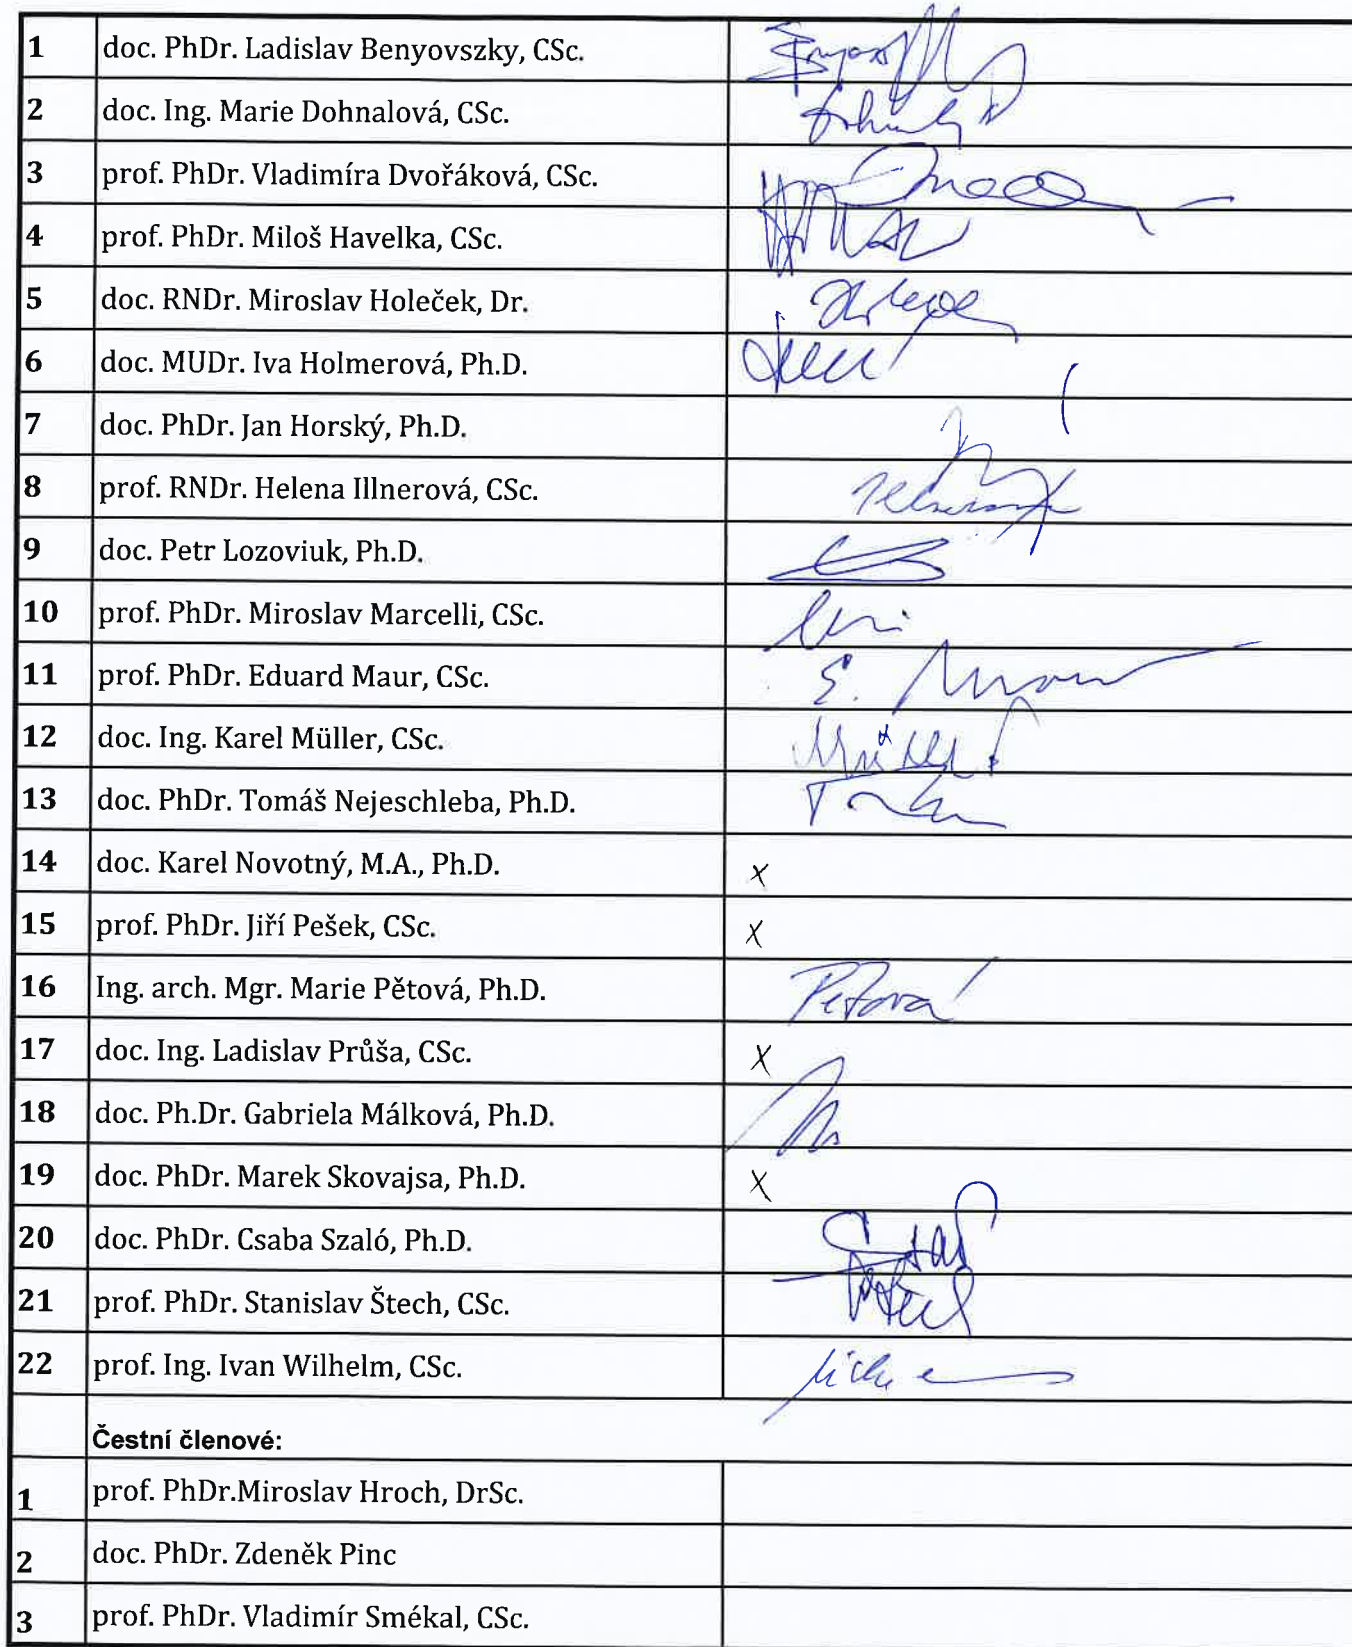 1 doc. PhDr. Ladislav Benyovszky, CSc.
2 doc. Ing. Marie Dohnalová, CSc.
3 prof. PhDr. Vladimíra Dvořáková, CSc.
4 prof. PhDr. Miloš Havelka, CSc.
5 doc. RNDr. Miroslav Holeček, Dr.
6 doc. MUDr. Iva Holmerová, Ph.D.
7 doc. PhDr. Jan Horský, Ph.D.
8 prof. RNDr. Helena Illnerová, CSc.
9 doc. Petr Lozoviuk, Ph.D.
10 prof. PhDr. Miroslav Marcelli, CSc.
11 prof. PhDr. Eduard Maur, CSc.
12 doc. Ing. Karel Müller, CSc.
13 doc. PhDr. Tomáš Nejeschleba, Ph.D.
14 doc. Karel Novotný, M.A., Ph.D. x
15 prof. PhDr. Jiří Pešek, CSc. x
16 Ing. arch. Mgr. Marie Pětová, Ph.D. Pětová
17 doc. Ing. Ladislav Průša, CSc. x
18 doc. Ph.Dr. Gabriela Málková, Ph.D.
19 doc. PhDr. Marek Skovajsa, Ph.D. x
20 doc. PhDr. Csaba Szaló, Ph.D.
21 prof. PhDr. Stanislav Štech, CSc.
22 prof. Ing. Ivan Wilhelm, CSc.
Čestní členové:
1 prof. PhDr.Miroslav Hroch, DrSc.
2 doc. PhDr. Zdeněk Pinc
3 prof. PhDr. Vladimír Smékal, CSc.